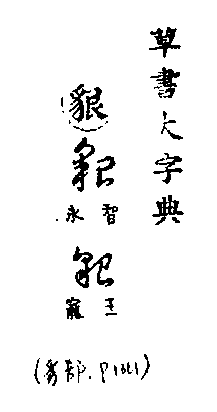 草書大字典
貇
貇
智永
貇
王寵
(豸部.P1361)